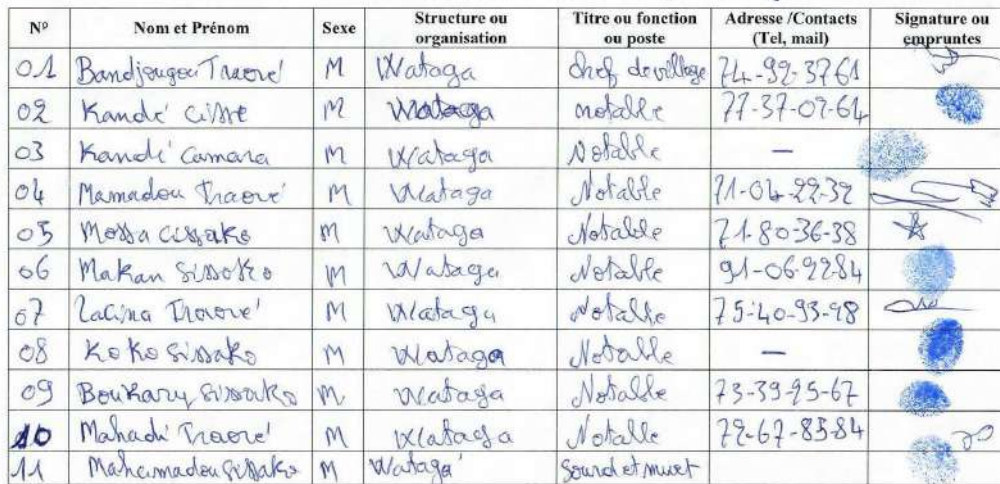 N° Nom et Prénom Sexe Structure ou organisation Titre ou fonction ou poste Adresse /Contacts (Tel, mail) Signature ou empruntes
01 Bandjougou Traoré M Wataga chef de village 74-92-3761
02 Kandé Cissé M Wataga notable 77-37-07-61
03 Kandé Camara M Wataga Notable —
04 Mamadou Traoré M Wataga Notable 71-04-22-32
05 Mossa Cissako M Wataga Notable 71-80-36-38
06 Makan Sissoko M Wataga Notable 91-06-2284
07 Lacina Traoré M Wataga Notable 75-40-93-98
08 Koko Sissako M Wataga Notable —
09 Boukary Sissako M Wataga Notable 73-39-95-67
10 Mahadi Traoré M Wataga Notable 72-67-85-84
11 Mahamadou Sissako M Wataga Sourd et muet